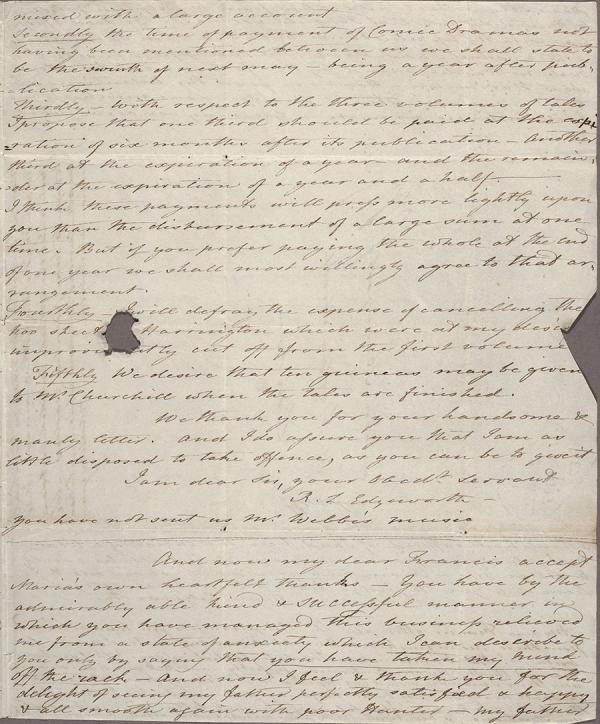 mixed with a large account
Secondly the time of payment of Comic Dramas not
having been mentioned between us we shall state to
be the seventh of next may – being a year after pub-
-lication
Thirdly – with respect to the three volumes of tales
I propose that one third should be paid at the expi-
ration of six months after its publication – Another
third at the expiration of a year – and the remain-
-der at the expiration of a year and a half –
I think these payments will press more lightly upon
you than the disbursement of a large sum at one
time. But if you prefer paying the whole at the end
of one year we shall most willingly agree to that ar-
rangement.
Fourthly I will defray the expense of cancelling the
two sheets Harrington which were at my desire
improvidently cut off from the first volume
Fifthly We desire that ten guineas may be given
to Mr. Churchill when the tales are finished.
We thank you for your handsome &
manly letter. And I do assure you that I am as
little disposed to take offence, as you can be to give it
I am dear Sir, your Obedt. Servant
R. L Edgeworth –
you have not sent us Mr. Webbe's music
And now my dear Francis accept
Maria's own heartfelt thanks – You have by the
admirably able kind & successful manner in
which you have managed this business relieved
me from a state of anxiety which I can describe to
you only by saying that you have taken my mind
off the rack – And now I feel & thank you for the
delight of seeing my father perfectly satisfied & happy
& all smooth again with poor Hunter – my father